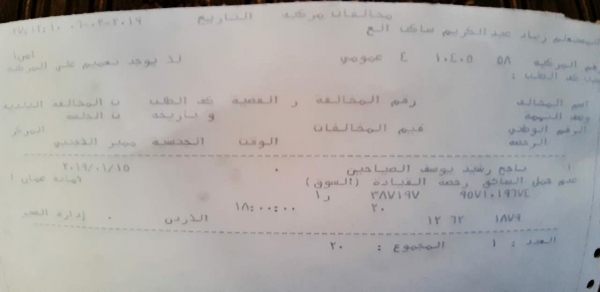 مخالفات مركبة التاريخ ٢٠١٩-٠٢-٠٦ ١٧:١٢:١٠
المستعلم زياد عبدالكريم صادق الع
رقم المركبة ٥٨ ١٠٤٠٥ ٤ عمومي لا يوجد تعميم على المركبة
اسم المخالف رقم المخالفة ر القضية كف الطلب ن المخالفة البلدية
وصف التهمة و تاريخه ن الجلسة
الرقم الوطني قيم المخالفات المركز
الرخصة الوقت الجنسية
ناجح رشيد يوسف الصباحين ٠ ٢٠١٩/٠١/١٥
عدم حمل السائق رخصة القيادة (السوق) امانة عمان
٩٥٧١٠١٩٦٧٤ ٣٨٧١٩٧ ر١
٢٠ ١٨:٠٠:٠٠
١٨٧٩ ٦٢ ١٢ الأردن ٠ إدارة السير
العدد : ١ المجموع : ٢٠